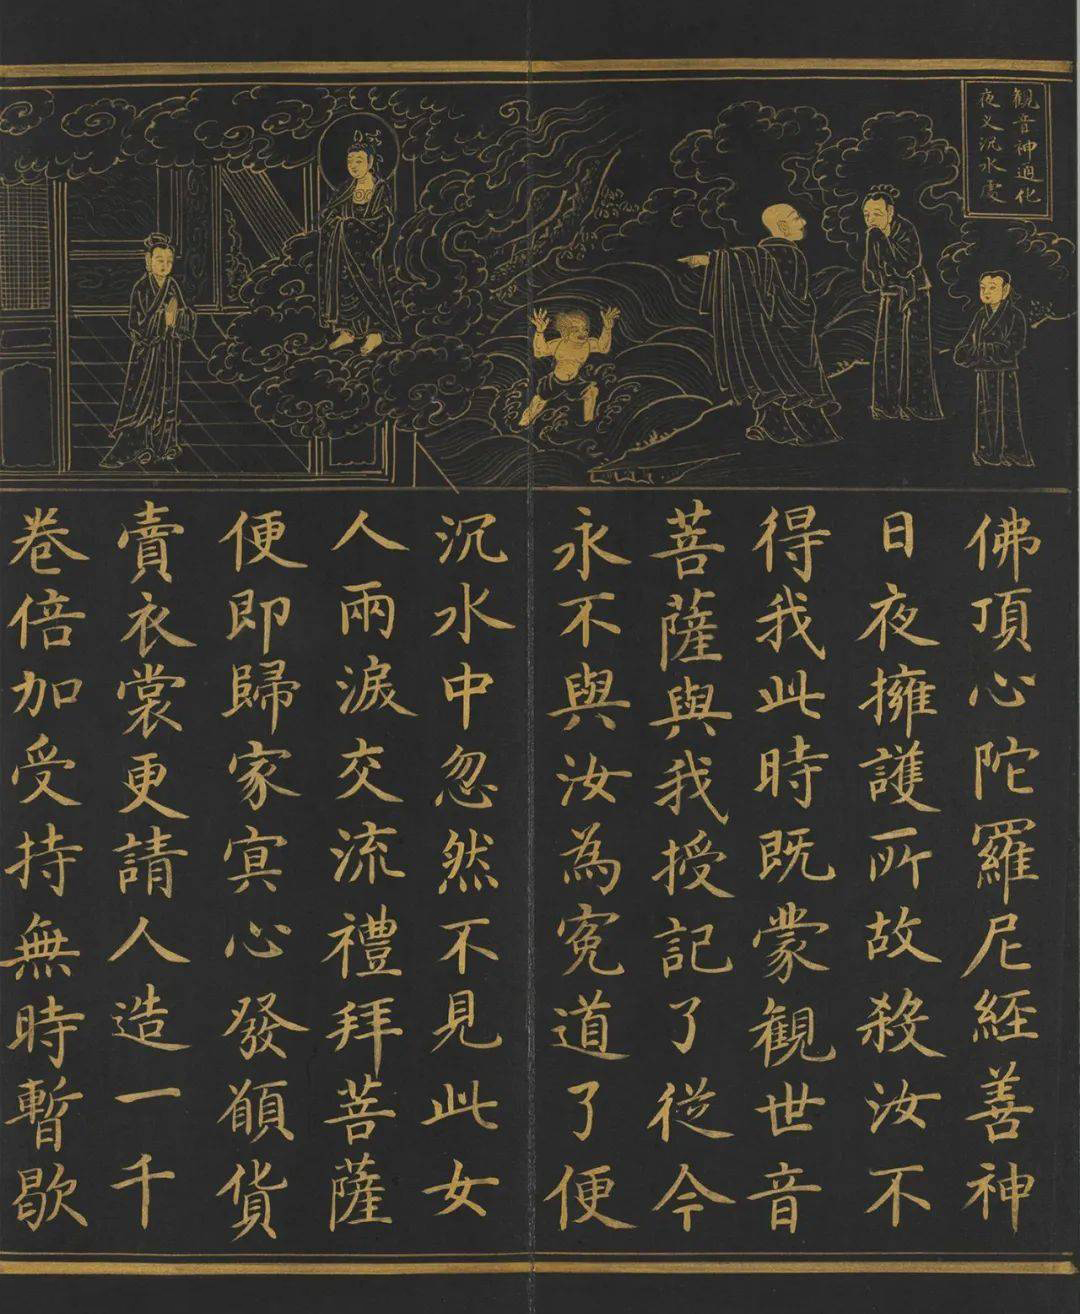 觀音神通化
夜叉沉水䖏
佛頂心陀羅尼經善神
日夜擁護所故殺汝不
得我此時既蒙觀世音
菩薩與我授記了從今
永不與汝為寃道了便
沉水中忽然不見此女
人兩淚交流禮拜菩薩
便即歸家㝠心發願貨
賣衣裳更請人造一千
卷倍加受持無時暫歇